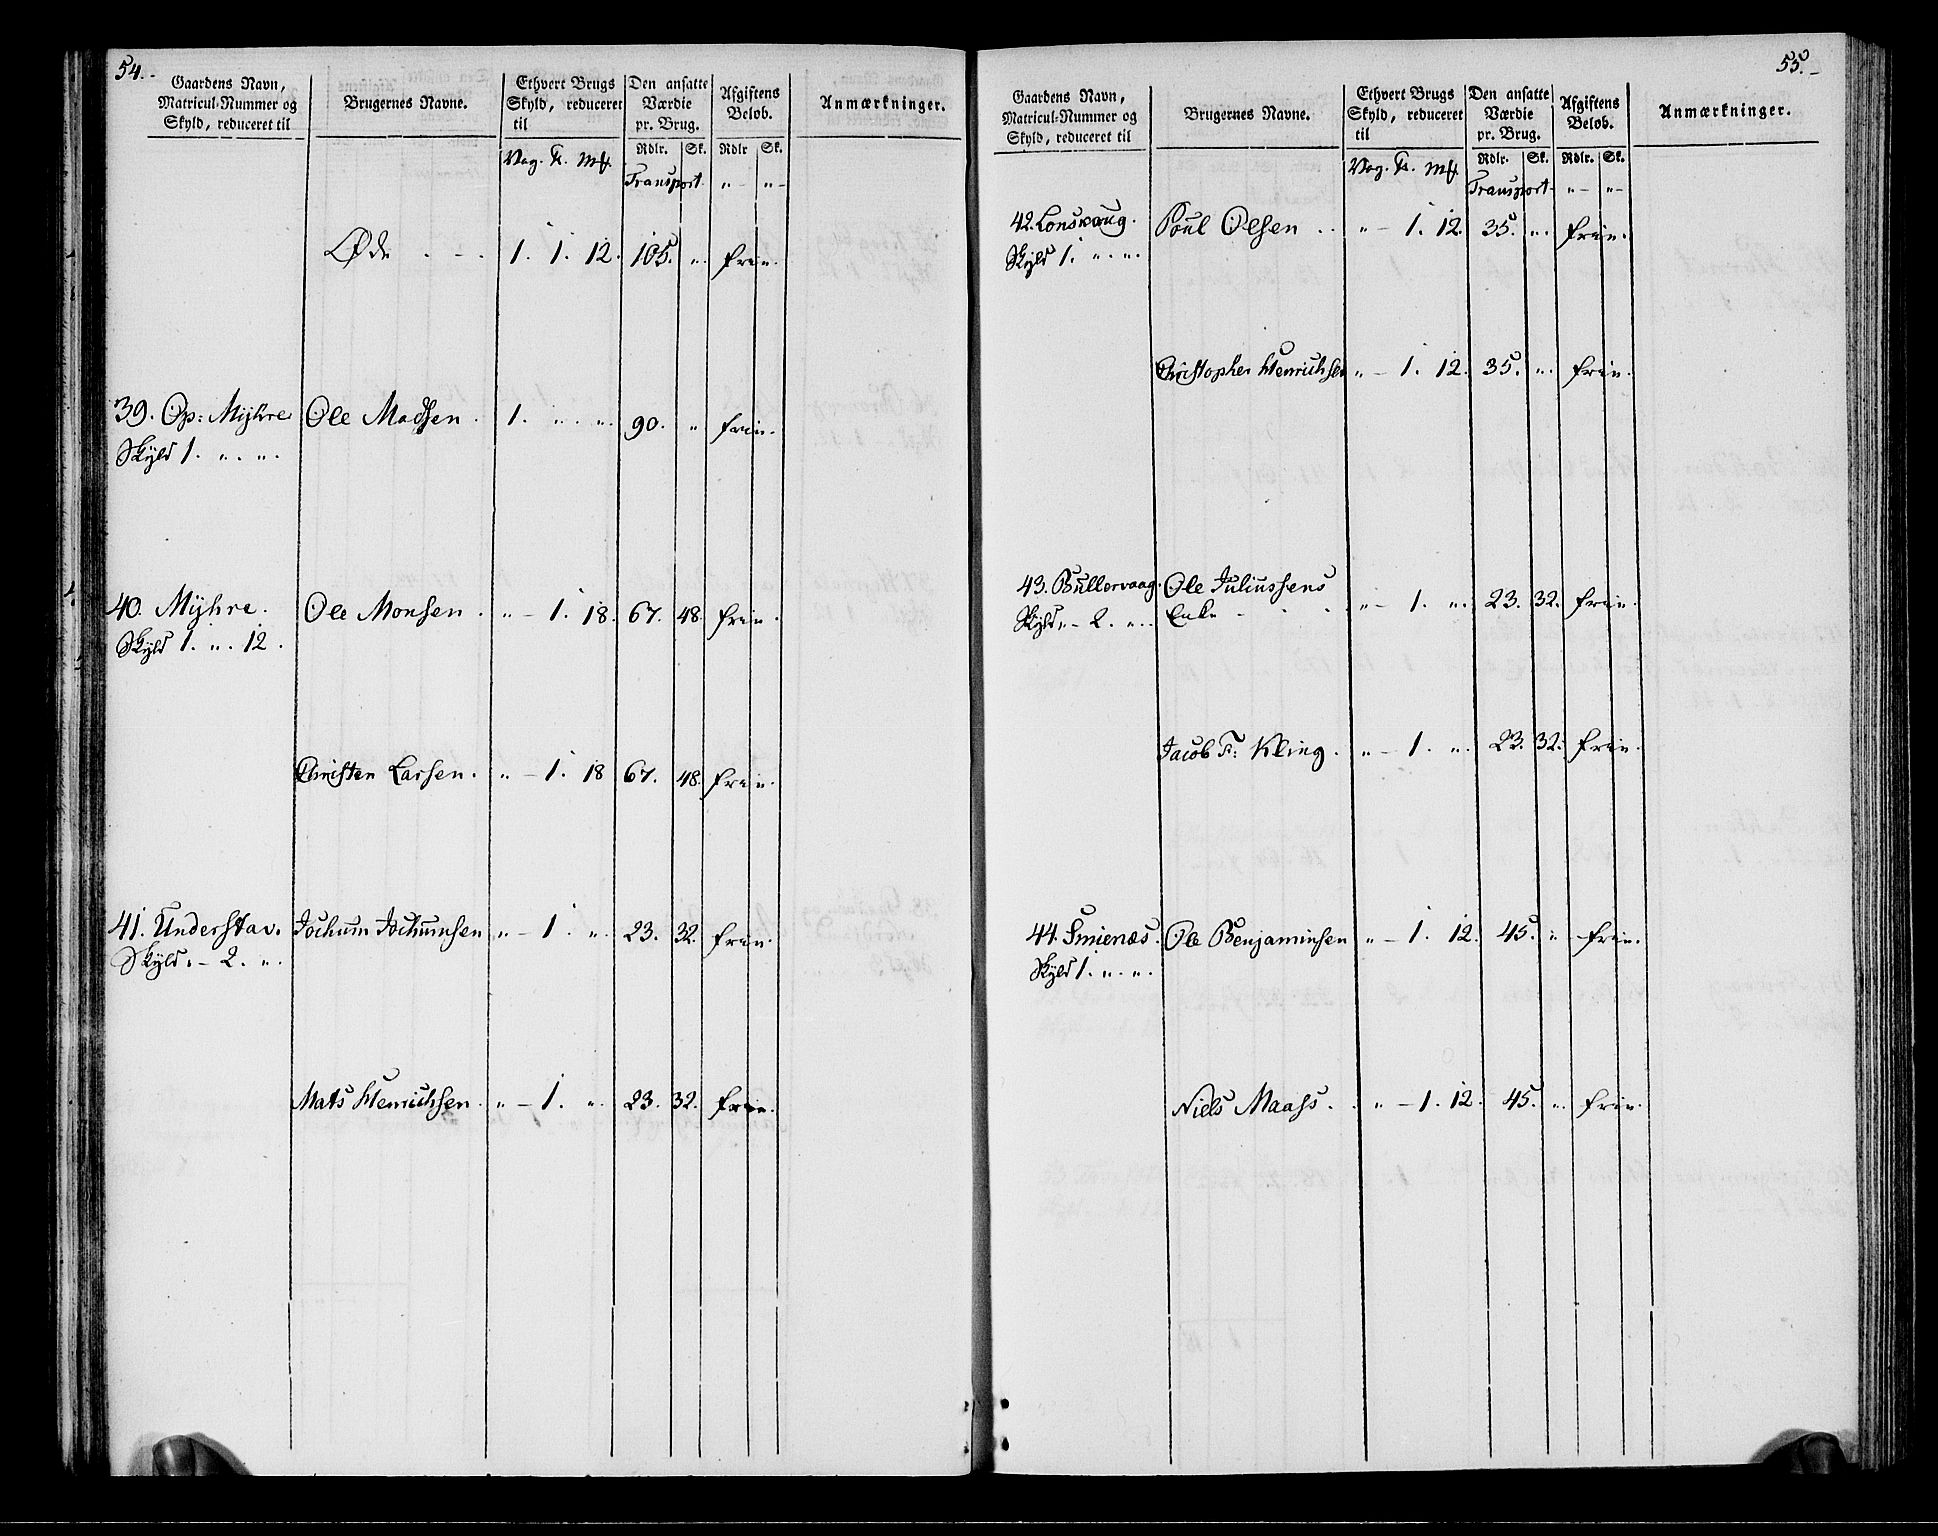 54.-
Gaardens Navn, Matricul-Nummer og Skyld, reduceret til
Brugernes Navne.
Ethvert Brugs Skyld, reduceret til
Den ansatte Værdie pr. Brug.
Afgiftens Beløb.
Anmærkninger.
Vog. ℔. mk
Rdlr. Sk. Rdlr Sk.
Transport. „– „–
Øde . - . 1. 1. 12. 105. „. frie.
39. Op: Myhre Ole Madsen . 1. „. „. 90. „ frie.
Skyld 1. „. „.
40. Myhre. Ole Monsen . „– 1. 18. 67. 48. frie.
Skyld 1. „. 12.
Christen Larsen. „– 1. 18 67. 48. frie.
41. Understav. Jochum Jochumsen „– 1. „. 23. 32. frie.
Skyld „– 2. „.
Mats Henrichsen. „– 1. „. 23. 32. frie.
55.–
Gaardens Navn, Matricul-Nummer og Skyld, reduceret til
Brugernes Navne.
Ethvert Brugs Skyld, reduceret til
Den ansatte Værdie pr. Brug.
Afgiftens Beløb.
Anmærkninger.
Vog. ℔. mk
Rdlr. Sk. Rdlr. Sk.
Transport. „– „–
42. Lonsvaag. Poul Olsen . . „– 1. 12. 35. „. frie.
Skyld 1. „. „.
Christopher Henrichsen „– 1. 12. 35. „. frie.
43. Bullervaag. Ole Juliussens
Skyld „– 2. „. Enke - . . „– 1. „. 23. 32. frie.
Jacob F: Kling . „– 1. „. 23. 32. frie.
44. Smienæs. Ole Benjaminsen „– 1. 12. 45. „ frie.
Skyld 1. „. „.
Niels Maass. . „– 1. 12. 45. „. frie.